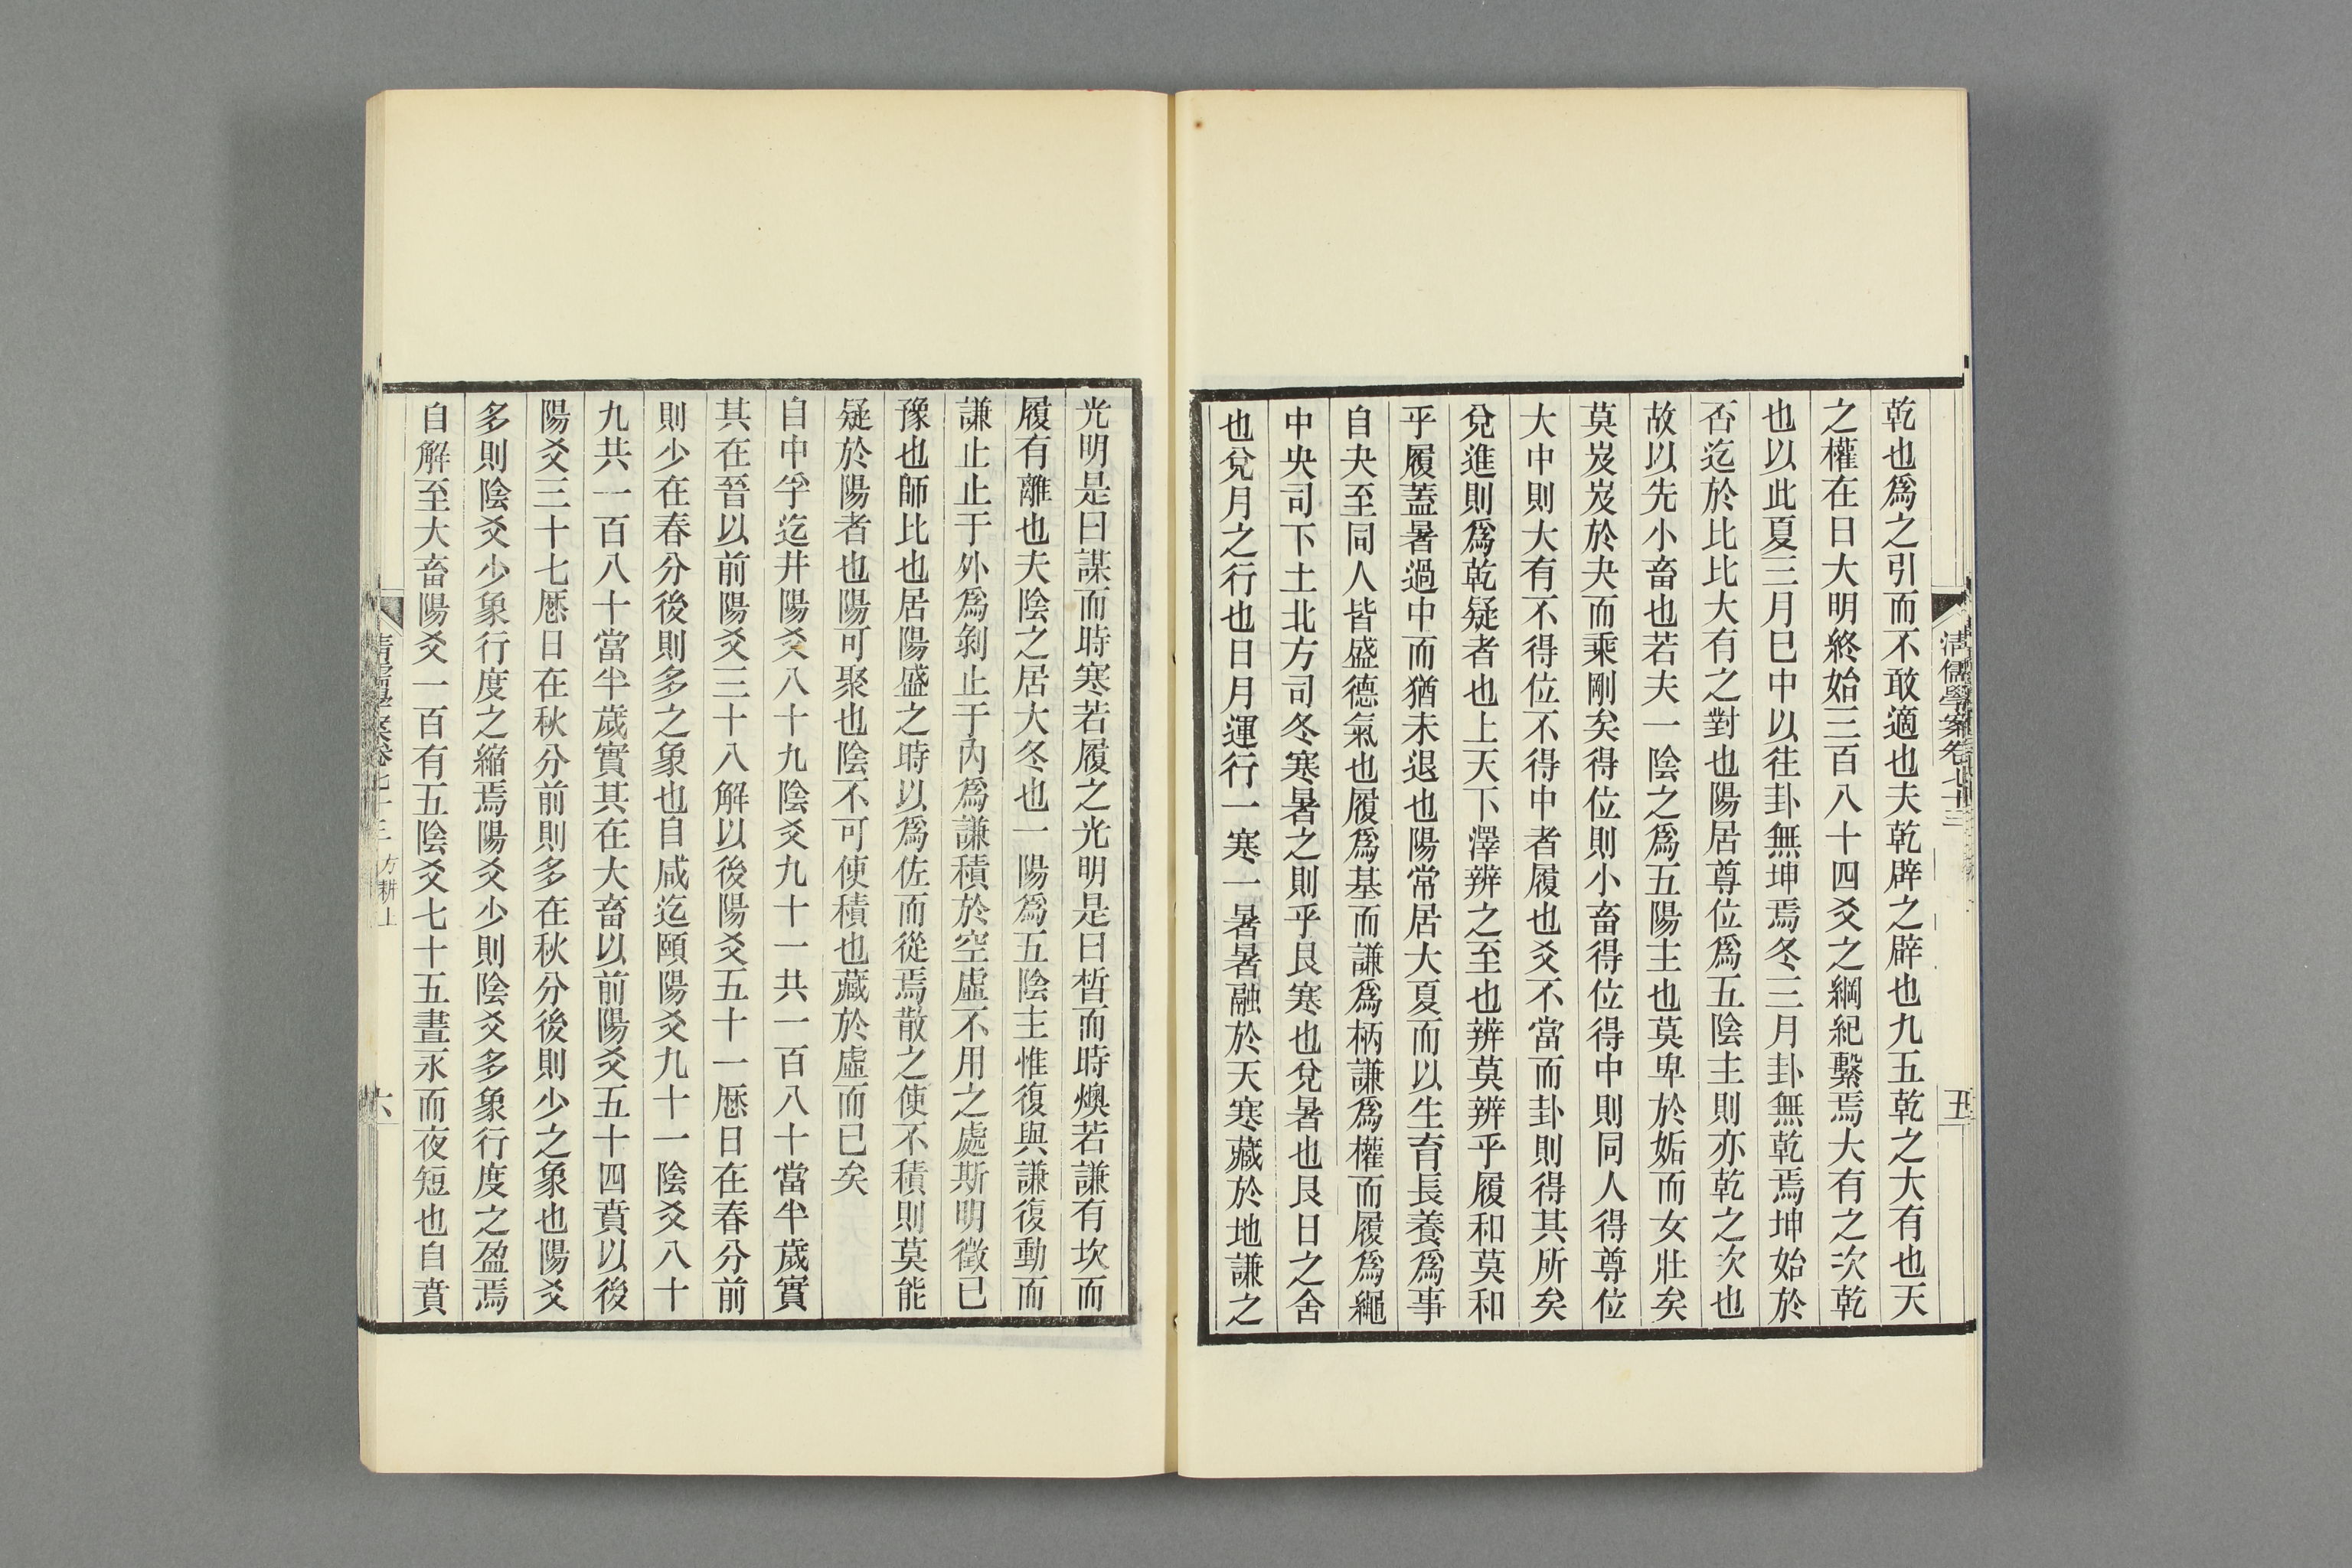 乾也爲之引而不敢適也夫乾辟之辟也九五乾之大有也天
之權在日大明終始三百八十四爻之綱紀繫焉大有之次乾
也以此夏三月巳中以往卦無坤焉冬三月卦無乾焉坤始於
否迄於比比大有之對也陽居尊位爲五陰主則亦乾之次也
故以先小畜也若夫一陰之爲五陽主也莫卑於姤而女壯矣
莫岌岌於夬而乘剛矣得位則小畜得位得中則同人得尊位
大中則大有不得位不得中者履也爻不當而卦則得其所矣
兌進則爲乾疑者也上天下澤辨之至也辨莫辨乎履和莫和
乎履蓋暑過中而猶未退也陽常居大夏而以生育長養爲事
自夬至同人皆盛德氣也履爲基而謙爲柄謙爲權而履爲繩
中央司下土北方司冬寒暑之則乎艮寒也兌暑也艮日之舍
也兌月之行也日月運行一寒一暑暑融於天寒藏於地謙之
清儒學案卷七十三
五
光明是曰謀而時寒若履之光明是曰晢而時燠若謙有坎而
履有離也夫陰之居大冬也一陽爲五陰主惟復與謙復動而
謙止止于外爲剝止于內爲謙積於空虛不用之處斯明徵已
豫也師比也居陽盛之時以爲佐而從焉散之使不積則莫能
疑於陽者也陽可聚也陰不可使積也藏於虛而已矣
自中孚迄井陽爻八十九陰爻九十一共一百八十當半歲實
其在晉以前陽爻三十八解以後陽爻五十一厯日在春分前
則少在春分後則多之象也自咸迄頤陽爻九十一陰爻八十
九共一百八十當半歲實其在大畜以前陽爻五十四賁以後
陽爻三十七厯日在秋分前則多在秋分後則少之象也陽爻
多則陰爻少象行度之縮焉陽爻少則陰爻多象行度之盈焉
自解至大畜陽爻一百有五陰爻七十五晝永而夜短也自賁
清儒學案卷七十三 方耕上
六